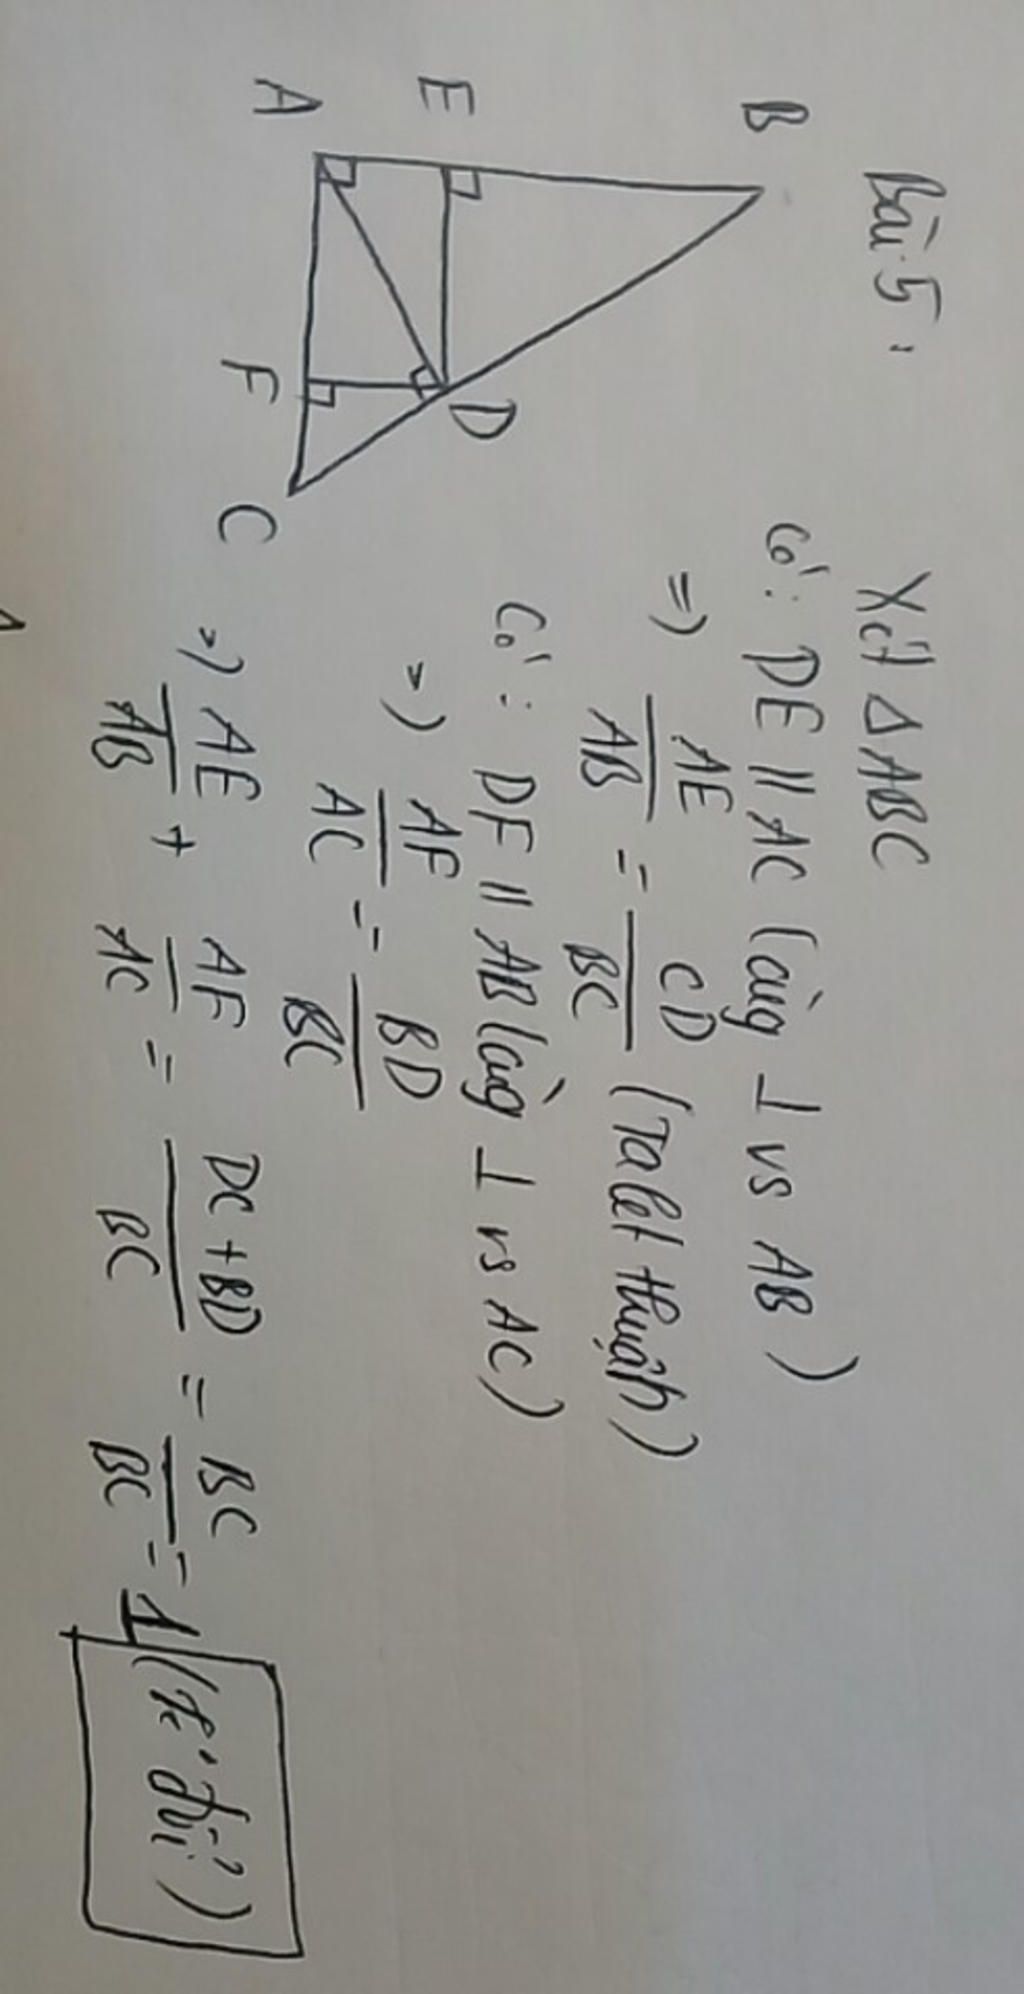 Bài 5:
B
E
A
D
F
C
Xét Δ ABC
Có: DE // AC (cùng ⊥ vs AB)
=) AE/AB = CD/BC (Talet thuận)
Có: DF // AB (cùng ⊥ vs AC)
=) AF/AC = BD/BC
=) AE/AB + AF/AC = DC+BD/BC = BC/BC = 1 (k' đổi)